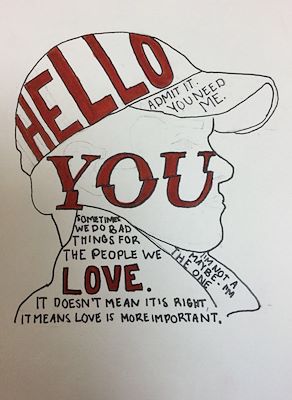 HELLO
ADMIT IT.
YOU NEED
ME.
YOU
SOMETIMES
WE DO BAD
THINGS FOR
THE PEOPLE WE
LOVE.
IT DOESN'T MEAN IT IS RIGHT
IT MEANS LOVE IS MORE IMPORTANT.
I'M NOT A
MAYBE. I'M
THE ONE